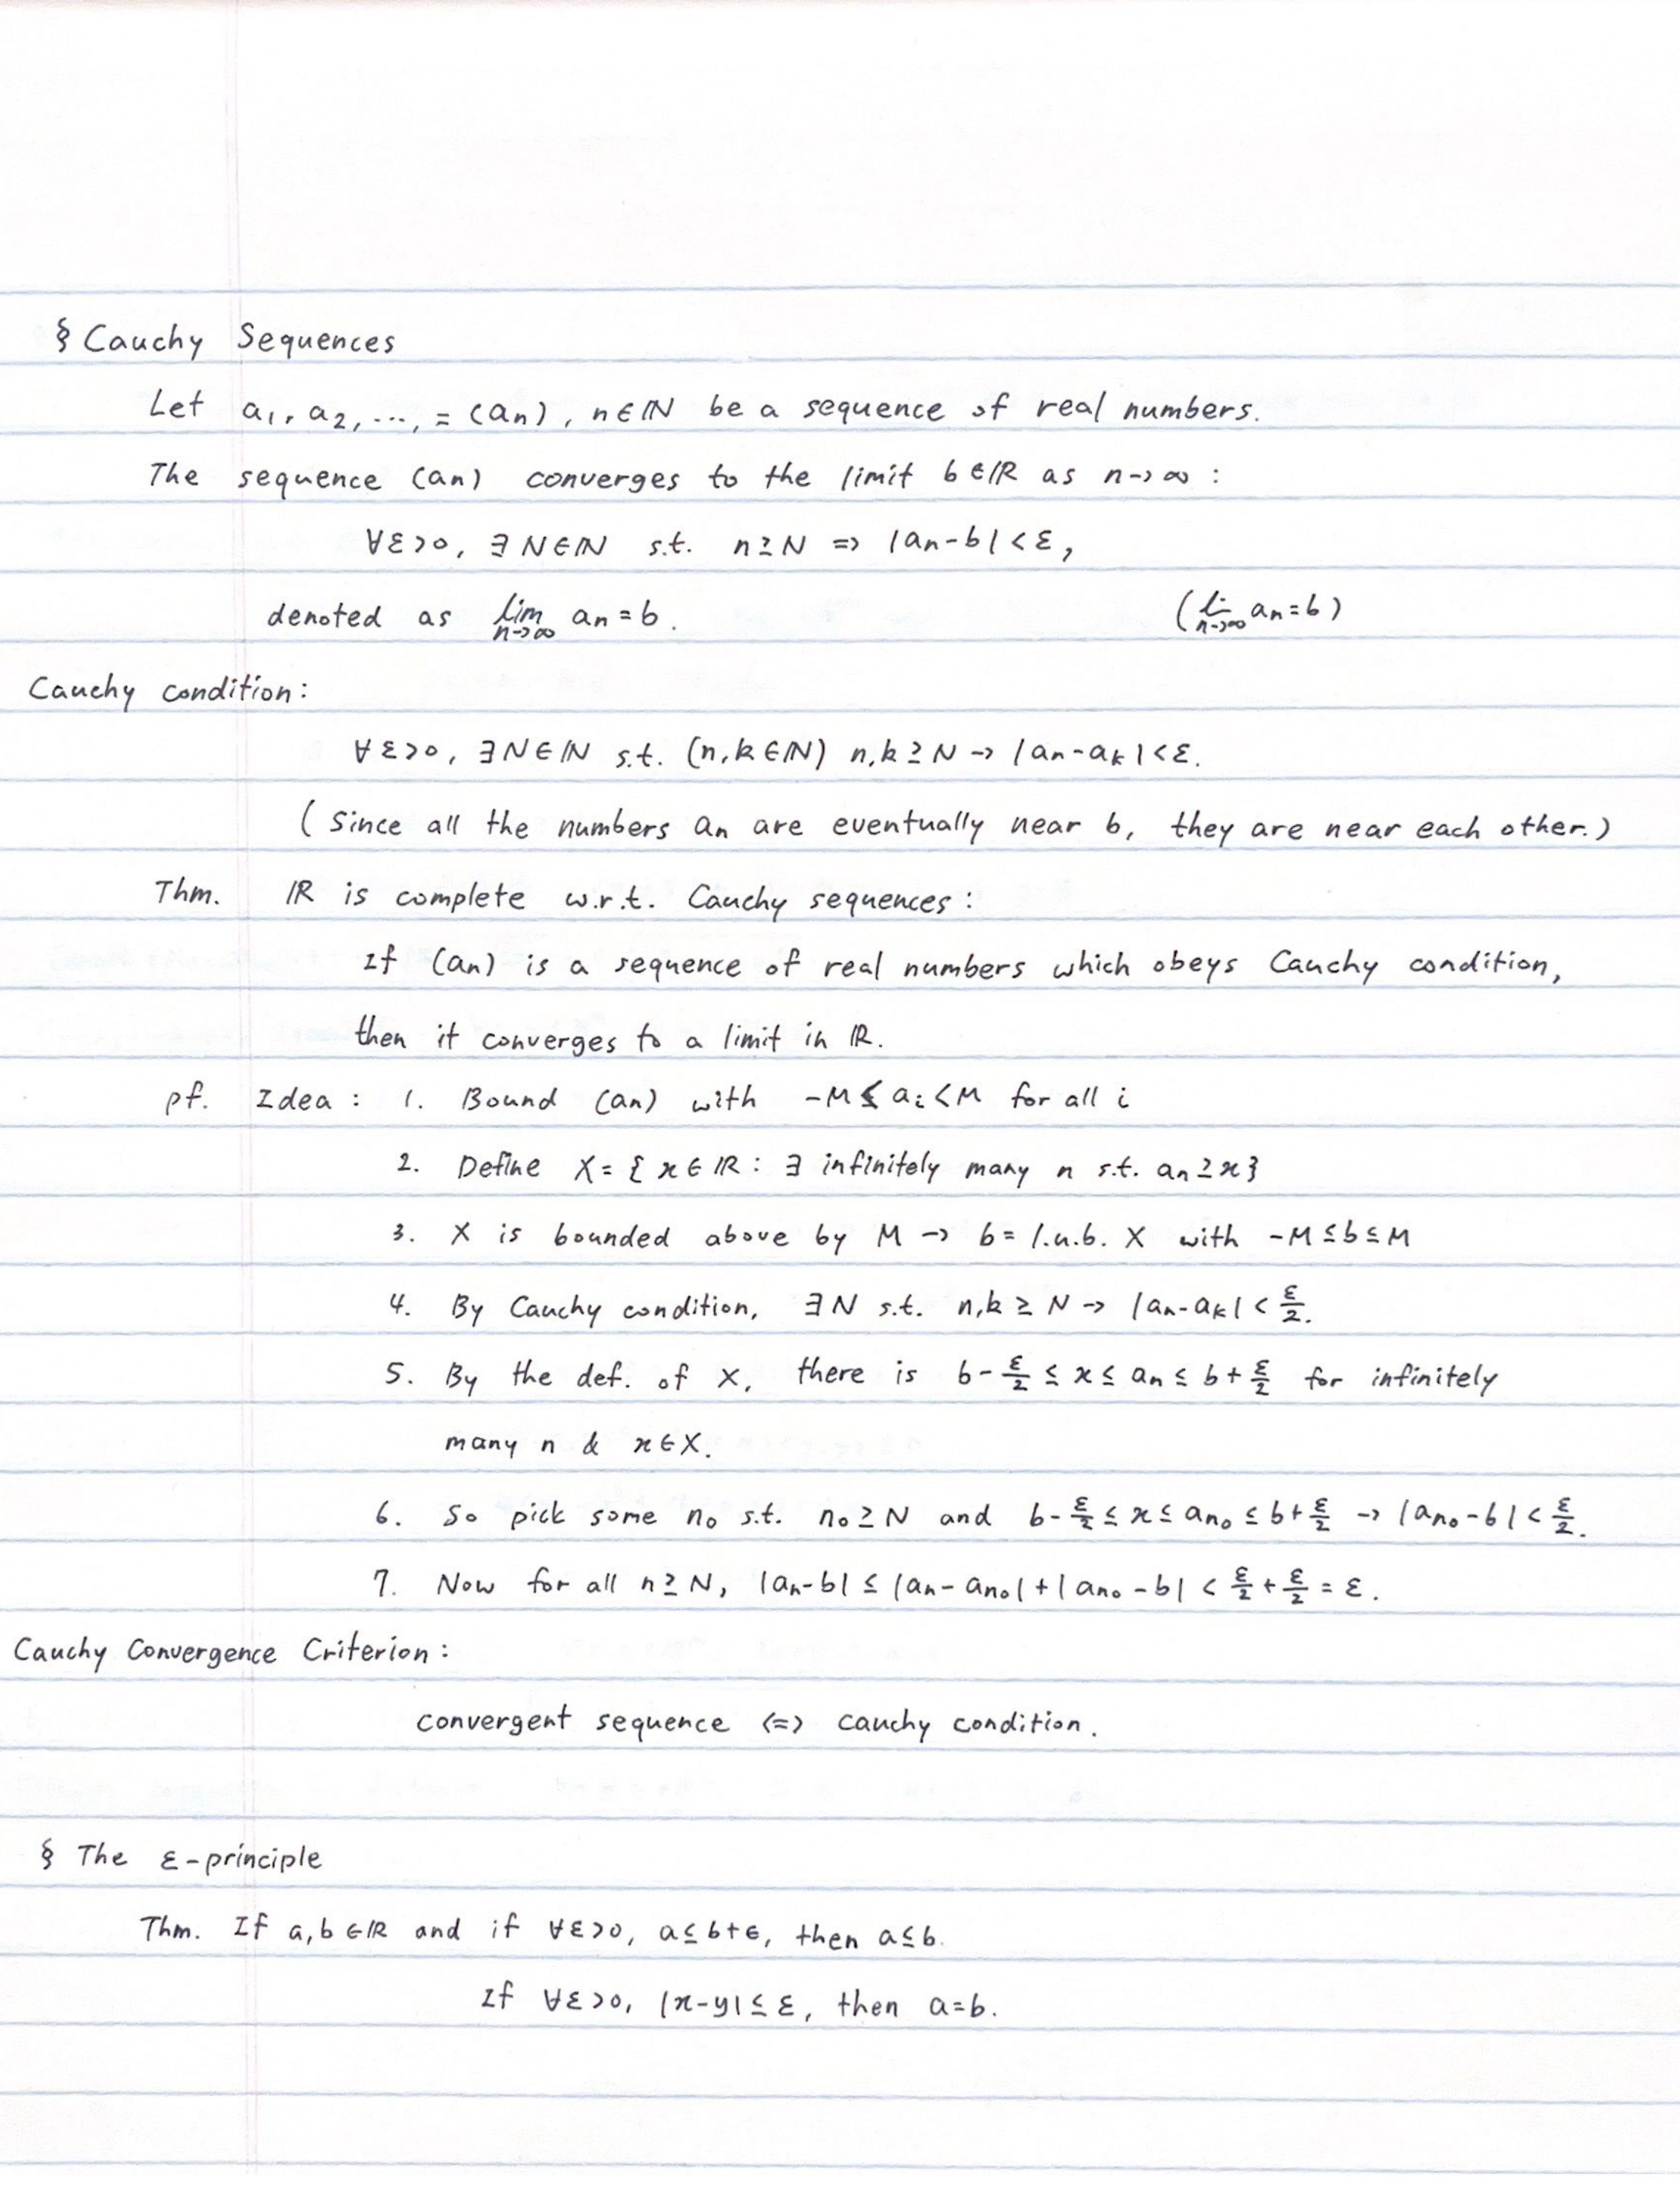 § Cauchy Sequences
Let a₁, a₂, ..., = (aₙ), n∈ℕ be a sequence of real numbers.
The sequence (aₙ) converges to the limit b∈ℝ as n→∞ :
∀ε>0, ∃N∈ℕ s.t. n≥N => |aₙ-b|<ε,
denoted as lim_{n→∞} aₙ=b. (lim_{n→∞} aₙ=b)
Cauchy condition:
∀ε>0, ∃N∈ℕ s.t. (n,k∈ℕ) n,k≥N → |aₙ-aₖ|<ε.
(Since all the numbers aₙ are eventually near b, they are near each other.)
Thm. ℝ is complete w.r.t. Cauchy sequences:
If (aₙ) is a sequence of real numbers which obeys Cauchy condition,
then it converges to a limit in ℝ.
pf. Idea: 1. Bound (aₙ) with -M≤aᵢ<M for all i
2. Define X={x∈ℝ: ∃ infinitely many n s.t. aₙ≥x}
3. X is bounded above by M → b= l.u.b. X with -M≤b≤M
4. By Cauchy condition, ∃N s.t. n,k≥N → |aₙ-aₖ|<ε/2.
5. By the def. of X, there is b-ε/2≤x≤aₙ≤b+ε/2 for infinitely
many n & x∈X.
6. So pick some n₀ s.t. n₀≥N and b-ε/2≤x≤a_{n₀}≤b+ε/2 → |a_{n₀}-b|<ε/2.
7. Now for all n≥N, |aₙ-b|≤|aₙ-a_{n₀}|+|a_{n₀}-b|<ε/2+ε/2=ε.
Cauchy Convergence Criterion:
convergent sequence <=> cauchy condition.
§ The ε-principle
Thm. If a,b∈ℝ and if ∀ε>0, a≤b+ϵ, then a≤b.
If ∀ε>0, |x-y|≤ε, then a=b.